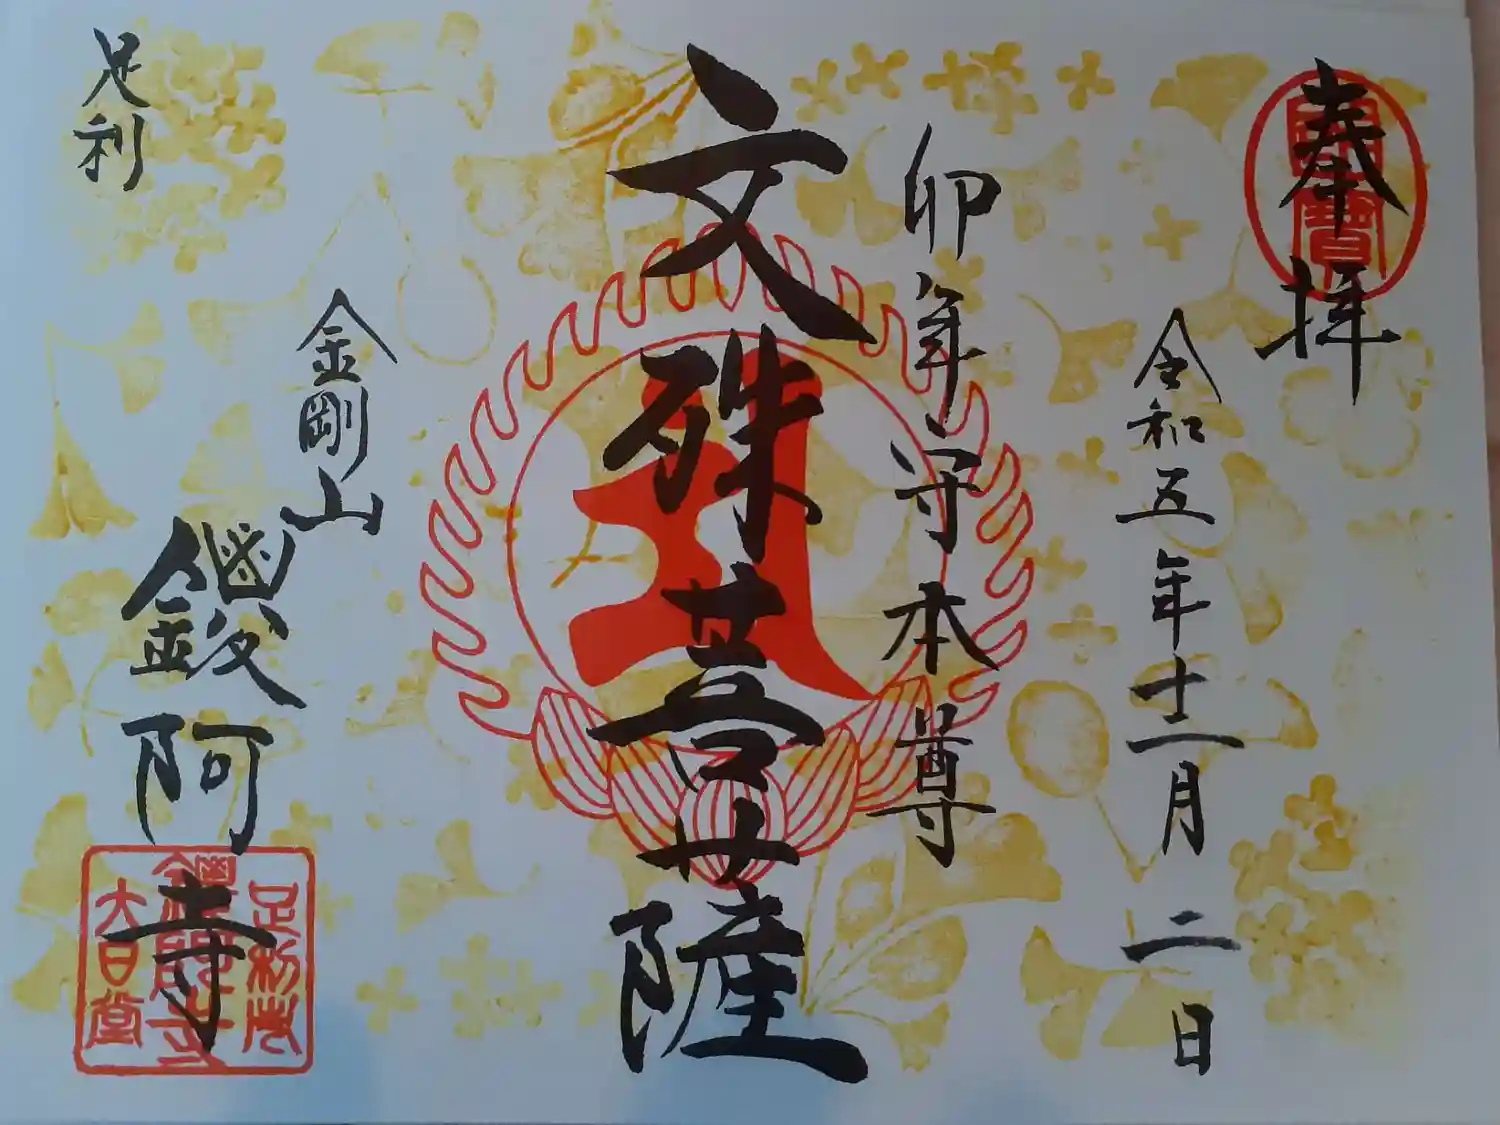 奉拝
令和五年十二月二日
卯年守本尊
文殊菩薩
金剛山
鑁阿寺
足利
足利荘
鑁阿寺
大日堂